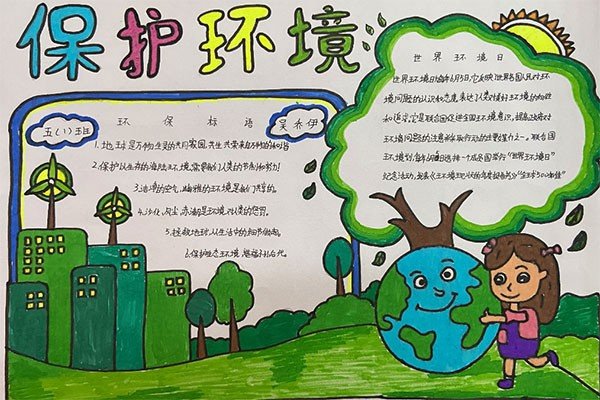 保护环境
五(1)班
环保标语
吴乔伊
1.地球是万物生灵的共同家园,共生共荣来自万物的和谐
2.保护以生存的海陆环境,需要我们人类的节制和努力!
3.洁净的空气,幽雅的环境是我们共享的。
4.沙化,风尘,赤潮是环境对人类的惩罚。
5.拯救地球,从生活中的细节做起。
6.保护生态环境,造福子孙后代。
世界环境日
世界环境日为每年6月5日,它反映了世界各国人民对环
境问题的认识和态度,表达了人类对美好环境的向往
和追求,它是联合国促进全球环境意识,提高政府对
环境问题的注意并采取行动的主要媒介之一。联合国
环境规划署每年6月5日选择一个成员国举行"世界环境日"
纪念活动,发表《环境现状的年度报告书》"全球500佳"